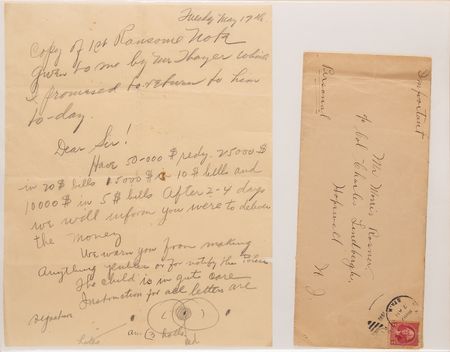 Tuesday May 17th.
Copy of 1st Ransome Note
given to me by Mr Thayer which
I promised to return to him
to-day.
Dear Sir!
Have 50-000 $ redy. 25000 $
in 20 $ bills 15000 $ 10 $ bills and
10000 $ in 5 $ bills After 2-4 days
we will inform you were to deliver
the money
We warn you from making
anything public or for notify the Police
The child is in gute care
Instruction for all letters are
signature
and 3 holes
holes
red
Important
Personal
Mr Morris Rosner,
c/o Col. Charles Lindbergh,
Hopewell
N J